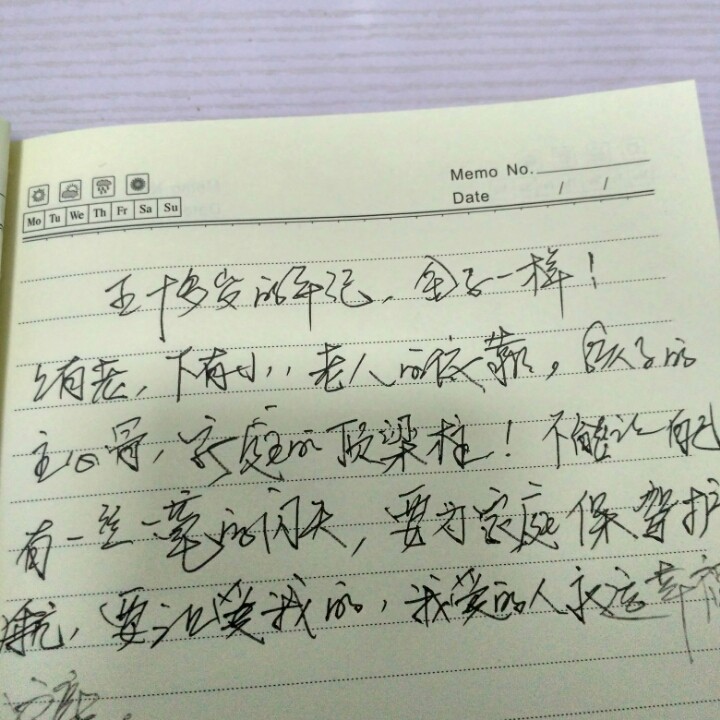 Memo No.
Date / /
Mo Tu We Th Fr Sa Su
五十多岁的年纪，金子一样！
上有老，下有小，老人的依靠，孩子的
主心骨，家庭的顶梁柱！不能让自己
有一丝一毫的闪失，要为家庭保驾护
航，要让爱我的，我爱的人永远幸福
安康．